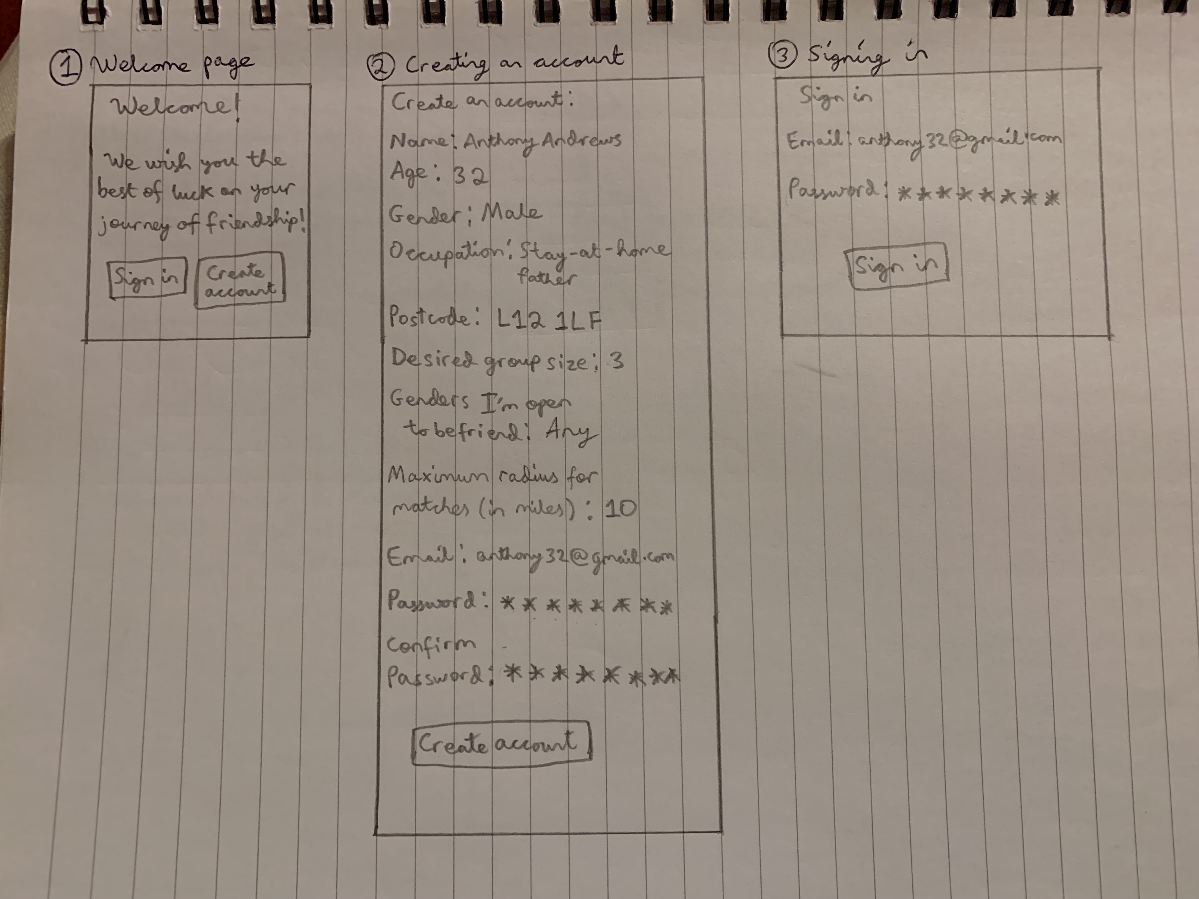 ① Welcome page
Welcome!
We wish you the
best of luck on your
journey of friendship!
Sign in
Create
account
② Creating an account
Create an account:
Name: Anthony Andrews
Age: 32
Gender: Male
Occupation: Stay-at-home
father
Postcode: L12 1LF
Desired group size: 3
Genders I'm open
to befriend: Any
Maximum radius for
matches (in miles): 10
Email: anthony32@gmail.com
Password: ********
Confirm
Password: ********
Create account
③ Signing in
Sign in
Email: anthony32@gmail.com
Password: ********
Sign in